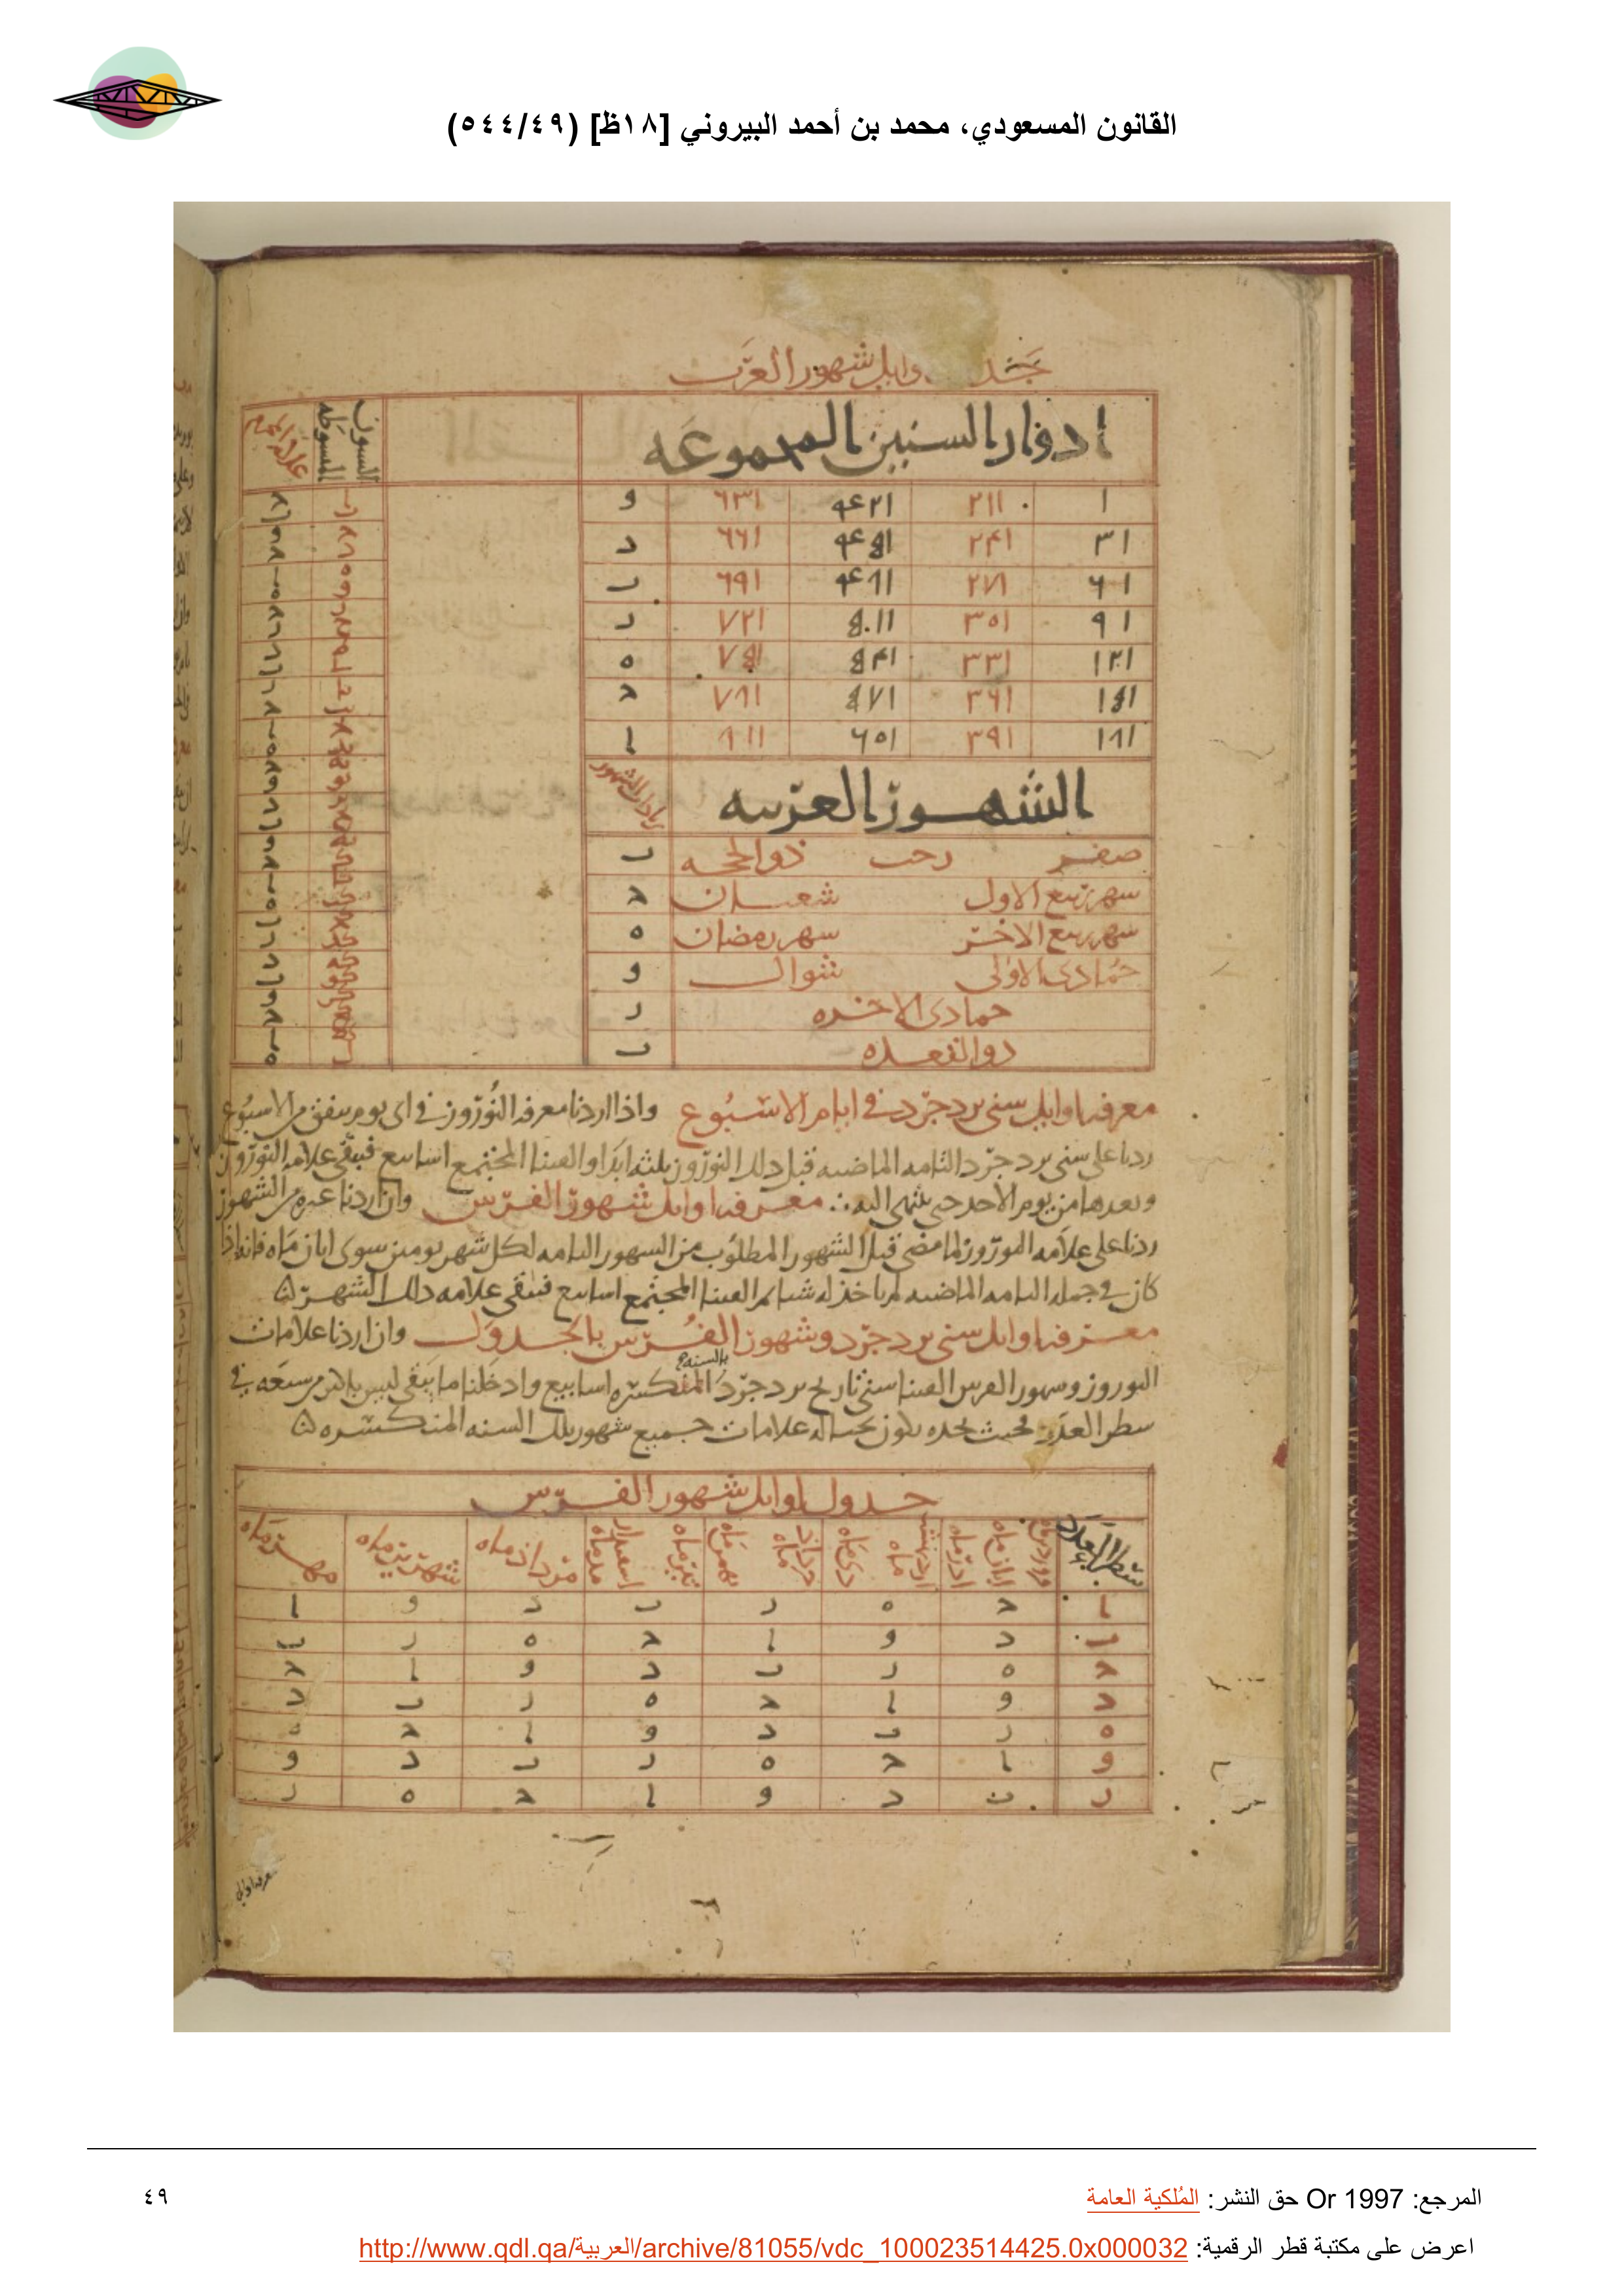 القانون المسعودي، محمد بن أحمد البيروني [١٨ظ] (٥٤٤/٤٩)
وايل شهور العرب
ادوار السنين المجموعه
السنون المبسوطه
١ ٢١١ ٤٢١ ٦٣١ و
٣١ ٢٤١ ٤٥١ ٦٦١ د
٦١ ٢٧١ ٤٨١ ٦٩١ ب
٩١ ٣٠١ ٥١١ ٧٢١ ر
١٢١ ٣٣١ ٥٤١ ٧٥١ ه
١٥١ ٣٦١ ٥٧١ ٧٨١ ح
١٨١ ٣٩١ ٦٠١ ٨١١ ا
الشهور العربيه
صفر رجب ذو الحجه ب
شهر ربيع الاول شعبان ح
شهر ربيع الاخر شهر رمضان ه
جمادى الاولى شوال و
جمادى الاخره ر
ذو القعده ب
معرفه اوايل سنى يزدجرد في ايام الاسبوع واذا اردنا معرفه النوروز في اى يوم يتفق من الاسبوع
زدنا على سنى يزدجرد التامه الماضيه قبل ذلك النوروز ثلثه ابدا والقينا المجتمع اسابيع فيبقى علامه النوروز
ونعدها من يوم الاحد حتى ينتهى اليه معرفه اوايل شهور الفرس وان اردنا غيره من الشهور
زدنا على علامه النوروز لما مضى قبل الشهور المطلوب من الشهور التامه لكل شهر يومين سوى ابان ماه فانه اذا
كان في جمله التامه الماضيه لم ياخذ له شيا ثم القينا المجتمع اسابيع فيبقى علامه ذلك الشهر ه
معرفه اوايل سنى يزدجرد وشهور الفرس بالجدول وان اردنا علامات
النوروز وشهور الفرس القينا سنى تاريخ يزدجرد بالسنه المنكسره اسابيع وادخلنا ما يبقى ليس باكثر من سبعه في
سطر العدد فحيث نجده يكون بحياله علامات جميع شهور تلك السنه المنكسره ه
جدول اوايل شهور الفرس
سطر العدد
ابان ماه اذر ماه
دى ماه
خرداد ماه بهمن ماه
تير ماه
مرداد ماه
شهرير ماه
مهر ماه
ا ح ه ر ب د و ا
ب د و ا ح ه ر ب
ح ه ر ب د و ا ح
د و ا ح ه ر ب د
ه ر ب د و ا ح ه
و ا ح ه ر ب د و
ر ب د و ا ح ه ر
معرفه اوايل
المرجع: Or 1997 حق النشر: المُلكية العامة
٤٩
اعرض على مكتبة قطر الرقمية: http://www.qdl.qa/العربية/archive/81055/vdc_100023514425.0x000032